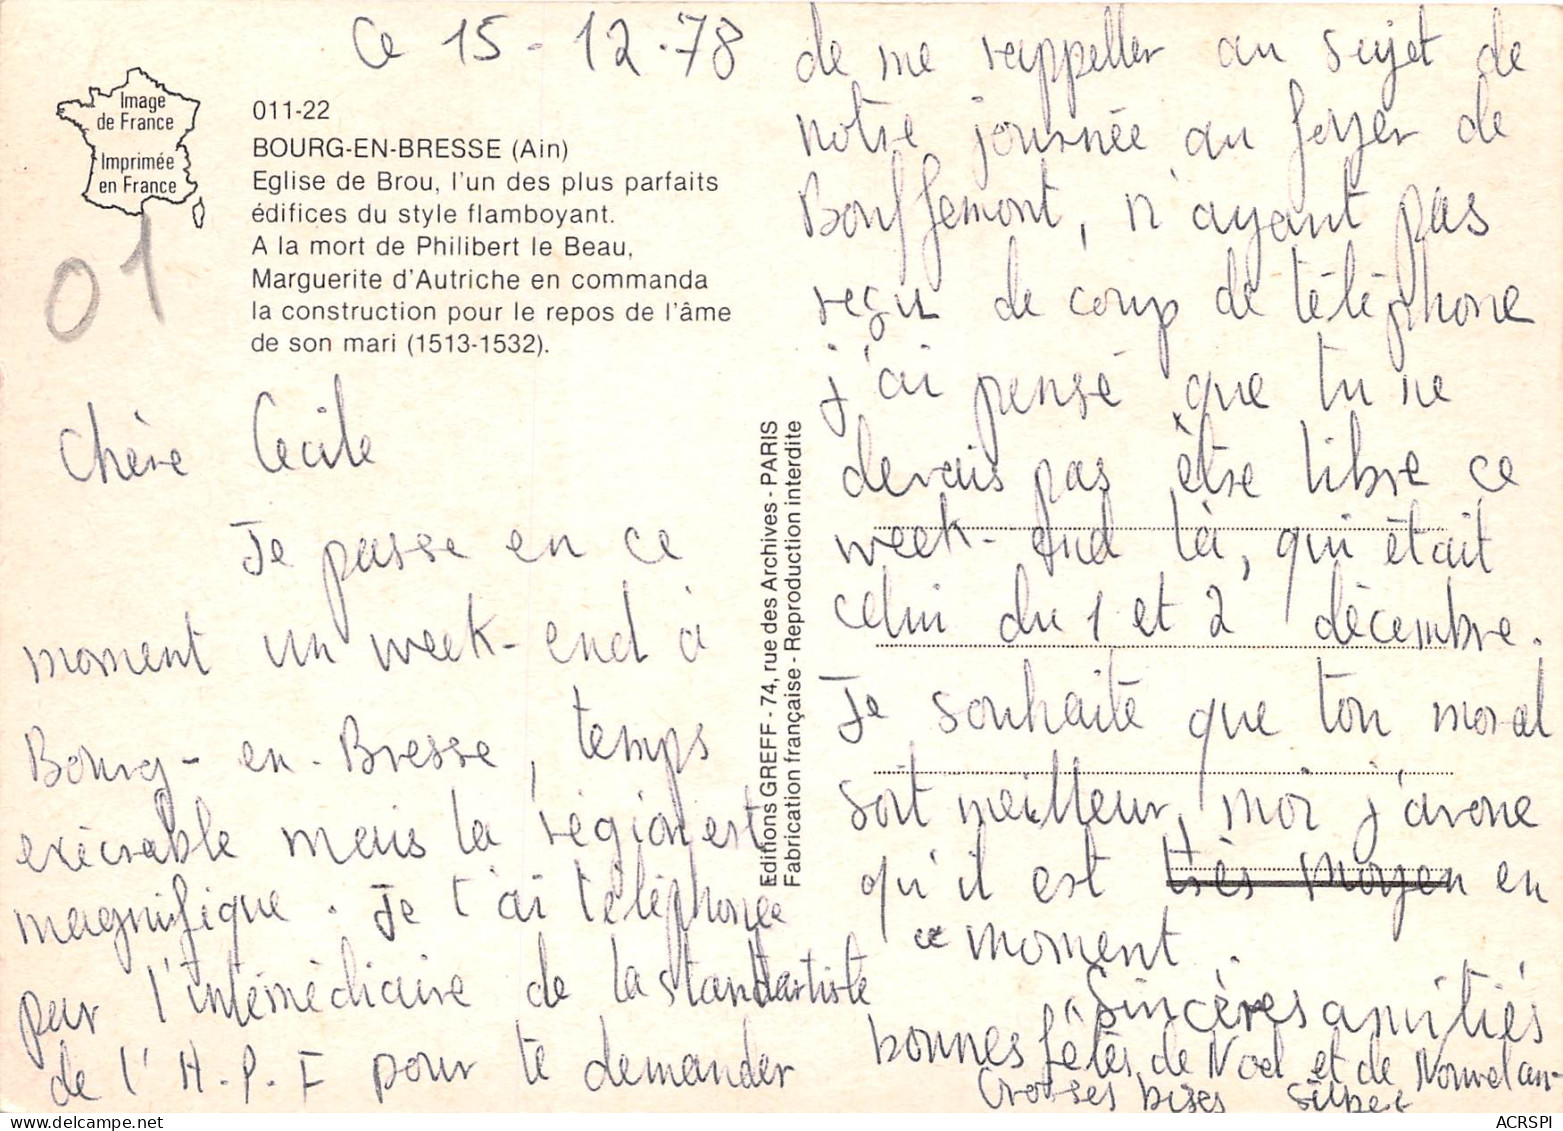 Ce 15-12.78
Image
de France
Imprimée
en France
01
011-22
BOURG-EN-BRESSE (Ain)
Eglise de Brou, l'un des plus parfaits
édifices du style flamboyant.
A la mort de Philibert le Beau,
Marguerite d'Autriche en commanda
la construction pour le repos de l'âme
de son mari (1513-1532).
Chère Cecile
Je passe en ce
moment un week-end à
Bourg-en-Bresse, temps
exécrable mais la région est
magnifique. Je t'ai téléphonée
par l'intérmédiaire de la standartiste
de l'H.P.F pour te demander
Editions GREFF - 74, rue des Archives - PARIS
Fabrication française - Reproduction interdite
de me rappeller au sujet de
notre journée au foyer de
Bouffemont, n'ayant pas
reçu de coup de téléphone
j'ai pensé que tu ne
devais pas être libre ce
week-end là, qui était
celui du 1 et 2 décembre.
Je souhaite que ton moral
soit meilleur, moi j'avoue
qu'il est très moyen en
ce moment.
Sincères amitiés
bonnes fêtes de Noel et de Nouvel an-
Grosses bises
ACRSPI